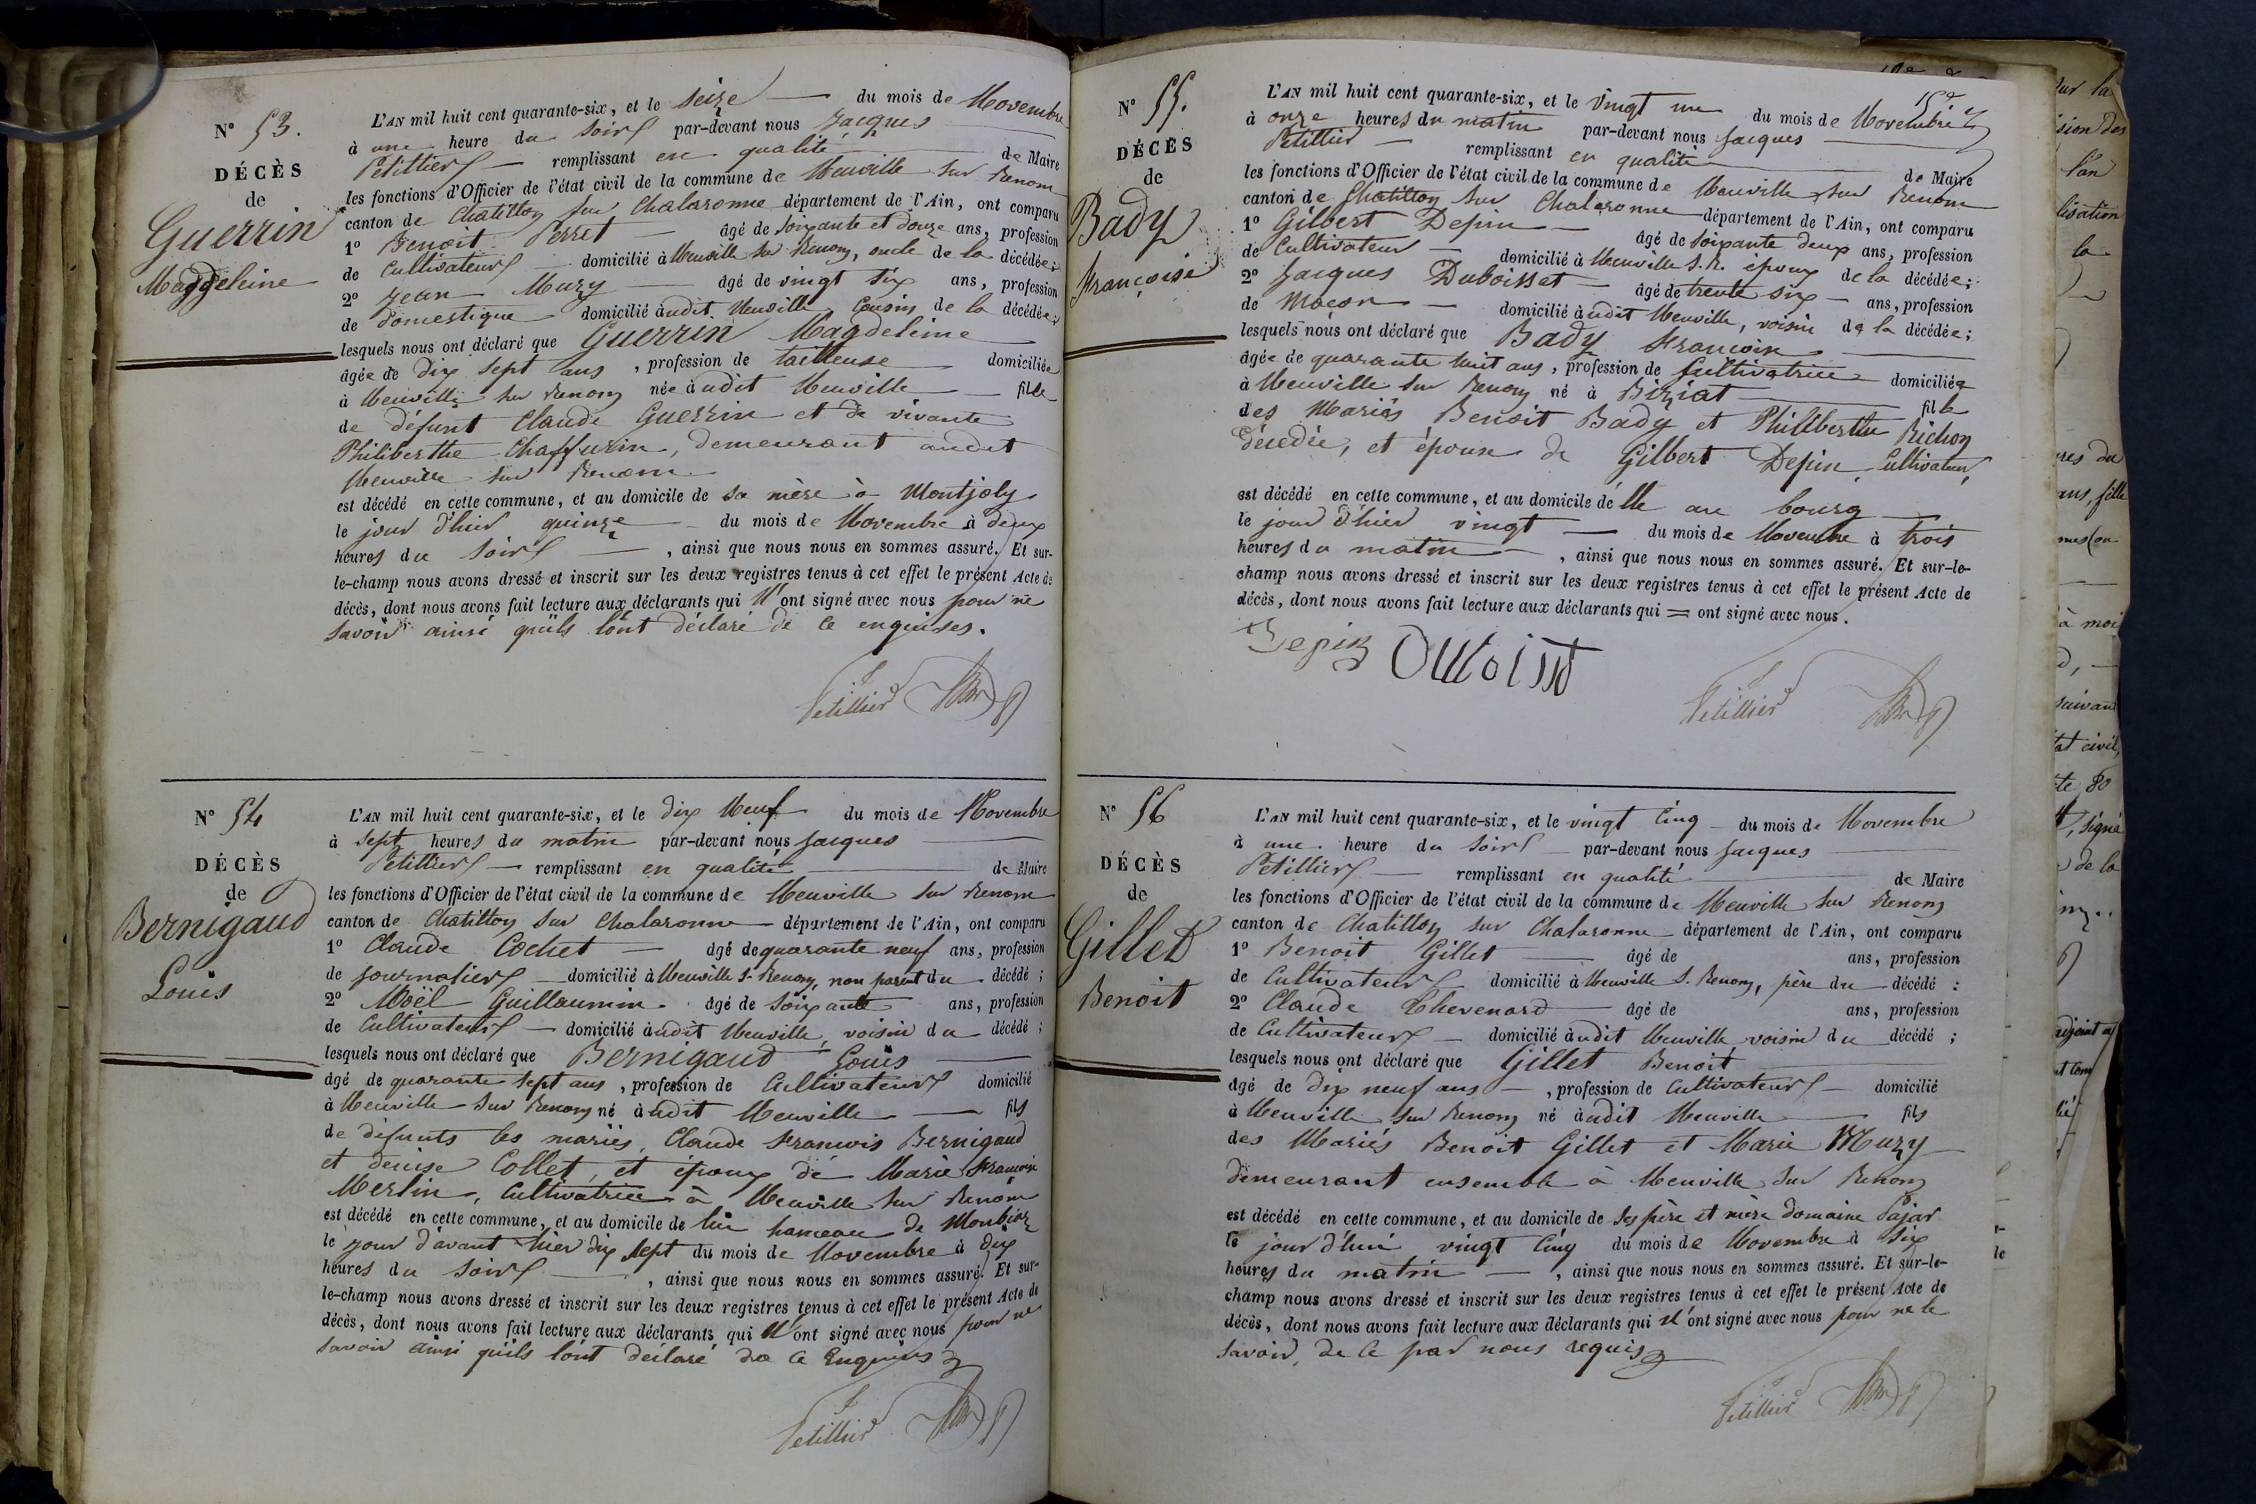 N° 53.
DÉCÈS
de
Guerrin
Magdeleine
L'AN mil huit cent quarante-six, et le seize du mois de Novembre
à une heure du soir par-devant nous Jacques
Petillier remplissant en qualité de Maire
les fonctions d'Officier de l'état civil de la commune de Neuville sur Renom
canton de Chatillon sur Chalaronne département de l'Ain, ont comparu
1° Benoit Perret âgé de soixante et douze ans, profession
de Cultivateur domicilié à Neuville sur Renom, oncle de la décédée;
2° Jean Muzy âgé de vingt six ans, profession
de domestique domicilié audit Neuville Cousin de la décédée;
lesquels nous ont déclaré que Guerrin Magdeleine
âgée de dix sept ans, profession de tailleuse domiciliée
à Neuville sur Renom née audit Neuville fille
de défunt Claude Guerrin et de vivante
Philiberthe Chaffurin, demeurant audit
Neuville sur Renom
est décédé en cette commune, et au domicile de sa mère à Montjoly
le jour d'hier quinze du mois de Novembre à deux
heures du soir, ainsi que nous nous en sommes assuré. Et sur-
le-champ nous avons dressé et inscrit sur les deux registres tenus à cet effet le présent Acte de
décès, dont nous avons fait lecture aux déclarants qui n'ont signé avec nous pour ne
savoir ainsi qu'ils l'ont déclaré de ce enquises.
Petillier
N° 54
DÉCÈS
de
Bernigaud
Louis
L'AN mil huit cent quarante-six, et le dix Neuf du mois de Novembre
à sept heures du matin par-devant nous Jacques
Petillier remplissant en qualité de Maire
les fonctions d'Officier de l'état civil de la commune de Neuville sur Renom
canton de Chatillon sur Chalaronne département de l'Ain, ont comparu
1° Claude Cochet âgé de quarante neuf ans, profession
de journalier domicilié à Neuville s. Renom, non parent du décédé;
2° Noël Guillaumin âgé de soixante ans, profession
de Cultivateur domicilié audit Neuville, voisin du décédé;
lesquels nous ont déclaré que Bernigaud Louis
âgé de quarante sept ans, profession de Cultivateur domicilié
à Neuville sur Renom né audit Neuville fils
de défunts les mariés Claude Francois Bernigaud
et denise Collet, et époux de Marie Francoise
Merlin, Cultivatrice à Neuville sur Renom
est décédé en cette commune, et au domicile de lui hameau de
le jour d'avant hier dix sept du mois de Novembre à dix
heures du soir, ainsi que nous nous en sommes assuré. Et sur-
le-champ nous avons dressé et inscrit sur les deux registres tenus à cet effet le présent Acte de
décès, dont nous avons fait lecture aux déclarants qui n'ont signé avec nous pour ne
savoir ainsi qu'ils l'ont déclaré de ce Enquis
Petillier
N° 55.
DÉCÈS
de
Bady
Françoise
L'AN mil huit cent quarante-six, et le Vingt un du mois de Novembre
à onze heures du matin par-devant nous Jacques
Petillier remplissant en qualité de Maire
les fonctions d'Officier de l'état civil de la commune de Neuville sur Renom
canton de Chatillon sur Chalaronne département de l'Ain, ont comparu
1° Gilbert Depin âgé de soixante deux ans, profession
de Cultivateur domicilié à Neuville S. R. époux de la décédée;
2° Jacques Duboisset âgé de trente six ans, profession
de Macon domicilié audit Neuville, voisin de la décédée;
lesquels nous ont déclaré que Bady Francoise
âgée de quarante huit ans, profession de Cultivatrice domiciliée
à Neuville sur Renom né à Biziat fille
des Mariés Benoit Bady et Philiberthe Richon
décédée, et épouse de Gilbert Depin, Cultivateur,
est décédé en cette commune, et au domicile d'elle au bourg
le jour d'hier vingt du mois de Novembre à trois
heures du matin, ainsi que nous nous en sommes assuré. Et sur-le-
champ nous avons dressé et inscrit sur les deux registres tenus à cet effet le présent Acte de
décès, dont nous avons fait lecture aux déclarants qui = ont signé avec nous.
Depin
Petillier
N° 56
DÉCÈS
de
Gillet
Benoit
L'AN mil huit cent quarante-six, et le vingt Cinq du mois de Novembre
à une heure du soir par-devant nous Jacques
Petillier remplissant en qualité de Maire
les fonctions d'Officier de l'état civil de la commune de Neuville sur Renom
canton de Chatillon sur Chalaronne département de l'Ain, ont comparu
1° Benoit Gillet âgé de ans, profession
de Cultivateur domicilié à Neuville S. Renom, père du décédé:
2° Claude Chevenard âgé de ans, profession
de Cultivateur domicilié audit Neuville voisin du décédé;
lesquels nous ont déclaré que Gillet Benoit
âgé de dix neuf ans, profession de Cultivateur domicilié
à Neuville sur Renom né audit Neuville fils
des Mariés Benoit Gillet et Marie Muzy
demeurant ensemble à Neuville sur Renom
est décédé en cette commune, et au domicile de ses père et mère domaine Pajar
le jour d'hui vingt Cinq du mois de Novembre à six
heures du matin, ainsi que nous nous en sommes assuré. Et sur-le-
champ nous avons dressé et inscrit sur les deux registres tenus à cet effet le présent Acte de
décès, dont nous avons fait lecture aux déclarants qui n'ont signé avec nous pour ne le
savoir, de ce par nous requis
Petillier